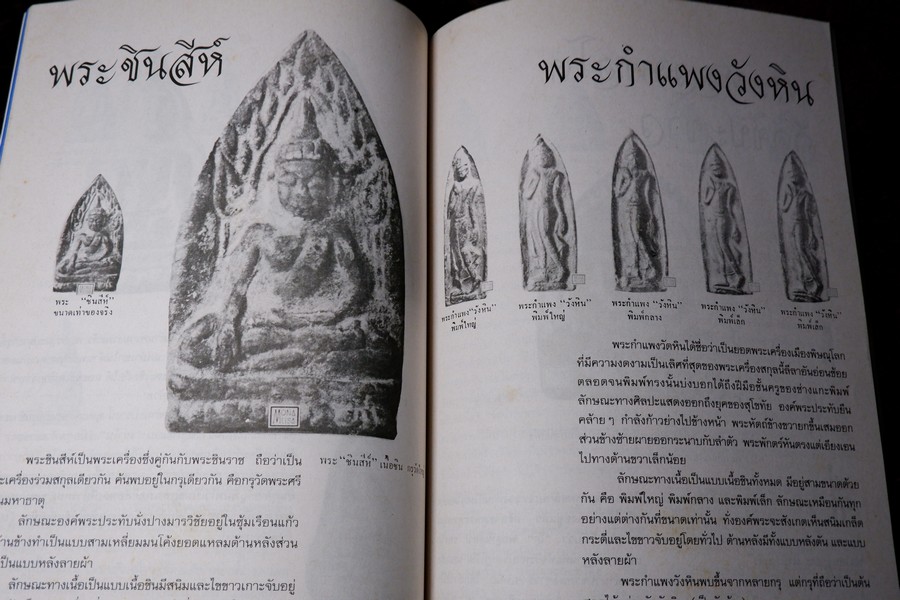 พระชินสีห์
พระ "ชินสีห์"
ขนาดเท่าของจริง
พระ "ชินสีห์" เนื้อชิน
พระชินสีห์เป็นพระเครื่องซึ่งคู่กันกับพระชินราช ถือว่าเป็น
ะเครื่องร่วมสกุลเดียวกัน ค้นพบอยู่ในกรุเดียวกัน คือกรุวัดพระศรี
นมหาธาตุ
ลักษณะองค์พระประทับนั่งปางมารวิชัยอยู่ในซุ้มเรือนแก้ว
านข้างทำเป็นแบบสามเหลี่ยมมนโค้งยอดแหลมด้านหลังส่วน
เป็นแบบหลังลายผ้า
ลักษณะทางเนื้อเป็นแบบเนื้อชินมีสนิมและไขขาวเกาะจับอยู่
พระกำแพงวังหิน
พระกำแพง "วังหิน"
พิมพ์ใหญ่
พระกำแพง "วังหิน"
พิมพ์ใหญ่
พระกำแพง "วังหิน"
พิมพ์กลาง
พระกำแพง "วังหิน"
พิมพ์เล็ก
พระกำแพง "วังหิน"
พิมพ์เล็ก
พระกำแพงวัดหินได้ชื่อว่าเป็นยอดพระเครื่องเมืองพิษณุโลก
ที่มีความงดงามเป็นเลิศที่สุดของพระเครื่องสกุลนี้ลีลาอันอ่อนช้อย
ตลอดจนพิมพ์ทรงนั้นบ่งบอกได้ถึงฝีมือชั้นครูของช่างแกะพิมพ์
ลักษณะทางศิลปะแสดงออกถึงยุคของสุโขทัย องค์พระประทับยืน
คล้าย ๆ กำลังก้าวย่างไปข้างหน้า พระหัตถ์ข้างขวายกขึ้นเสมออก
ส่วนข้างซ้ายผายออกระนาบกับลำตัว พระพักตร์หันตรงแต่เอียงเอน
ไปทางด้านขวาเล็กน้อย
ลักษณะทางเนื้อเป็นแบบเนื้อชินทั้งหมด มีอยู่สามขนาดด้วย
กัน คือ พิมพ์ใหญ่ พิมพ์กลาง และพิมพ์เล็ก ลักษณะเหมือนกันทุก
อย่างแต่ต่างกันที่ขนาดเท่านั้น ทั้งองค์พระจะสังเกตเห็นสนิมเกล็ด
กระดี่และไขขาวจับอยู่โดยทั่วไป ด้านหลังมีทั้งแบบหลังตัน และแบบ
หลังลายผ้า
พระกำแพงวังหินพบขึ้นจากหลายกรุ แต่กรุที่ถือว่าเป็นต้น